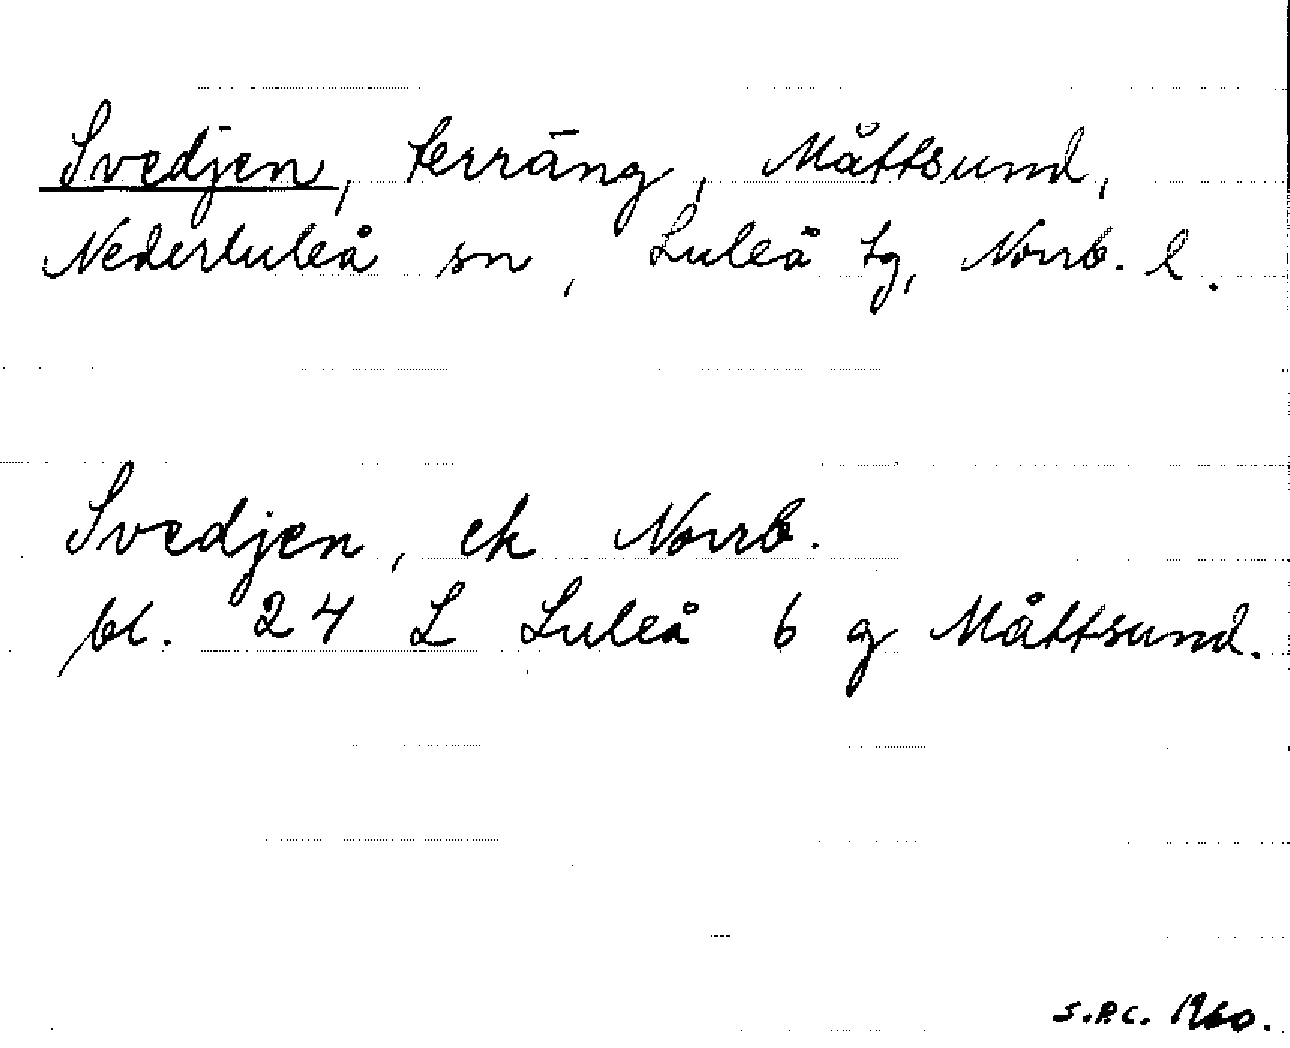 Svedjen, terräng, Måttsund,
Nederluleå sn, Luleå tg, Norrb. l.
Svedjen, ek Norrb.
bl. 24 L Luleå 6 g Måttsund.
S.P.C. 1960.